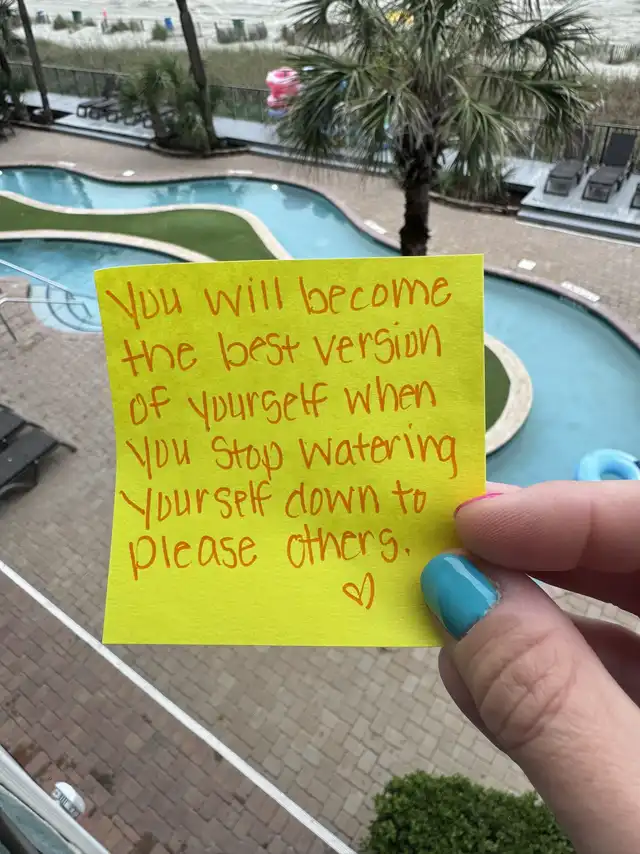 You will become
the best version
of yourself when
you stop watering
yourself down to
please others.